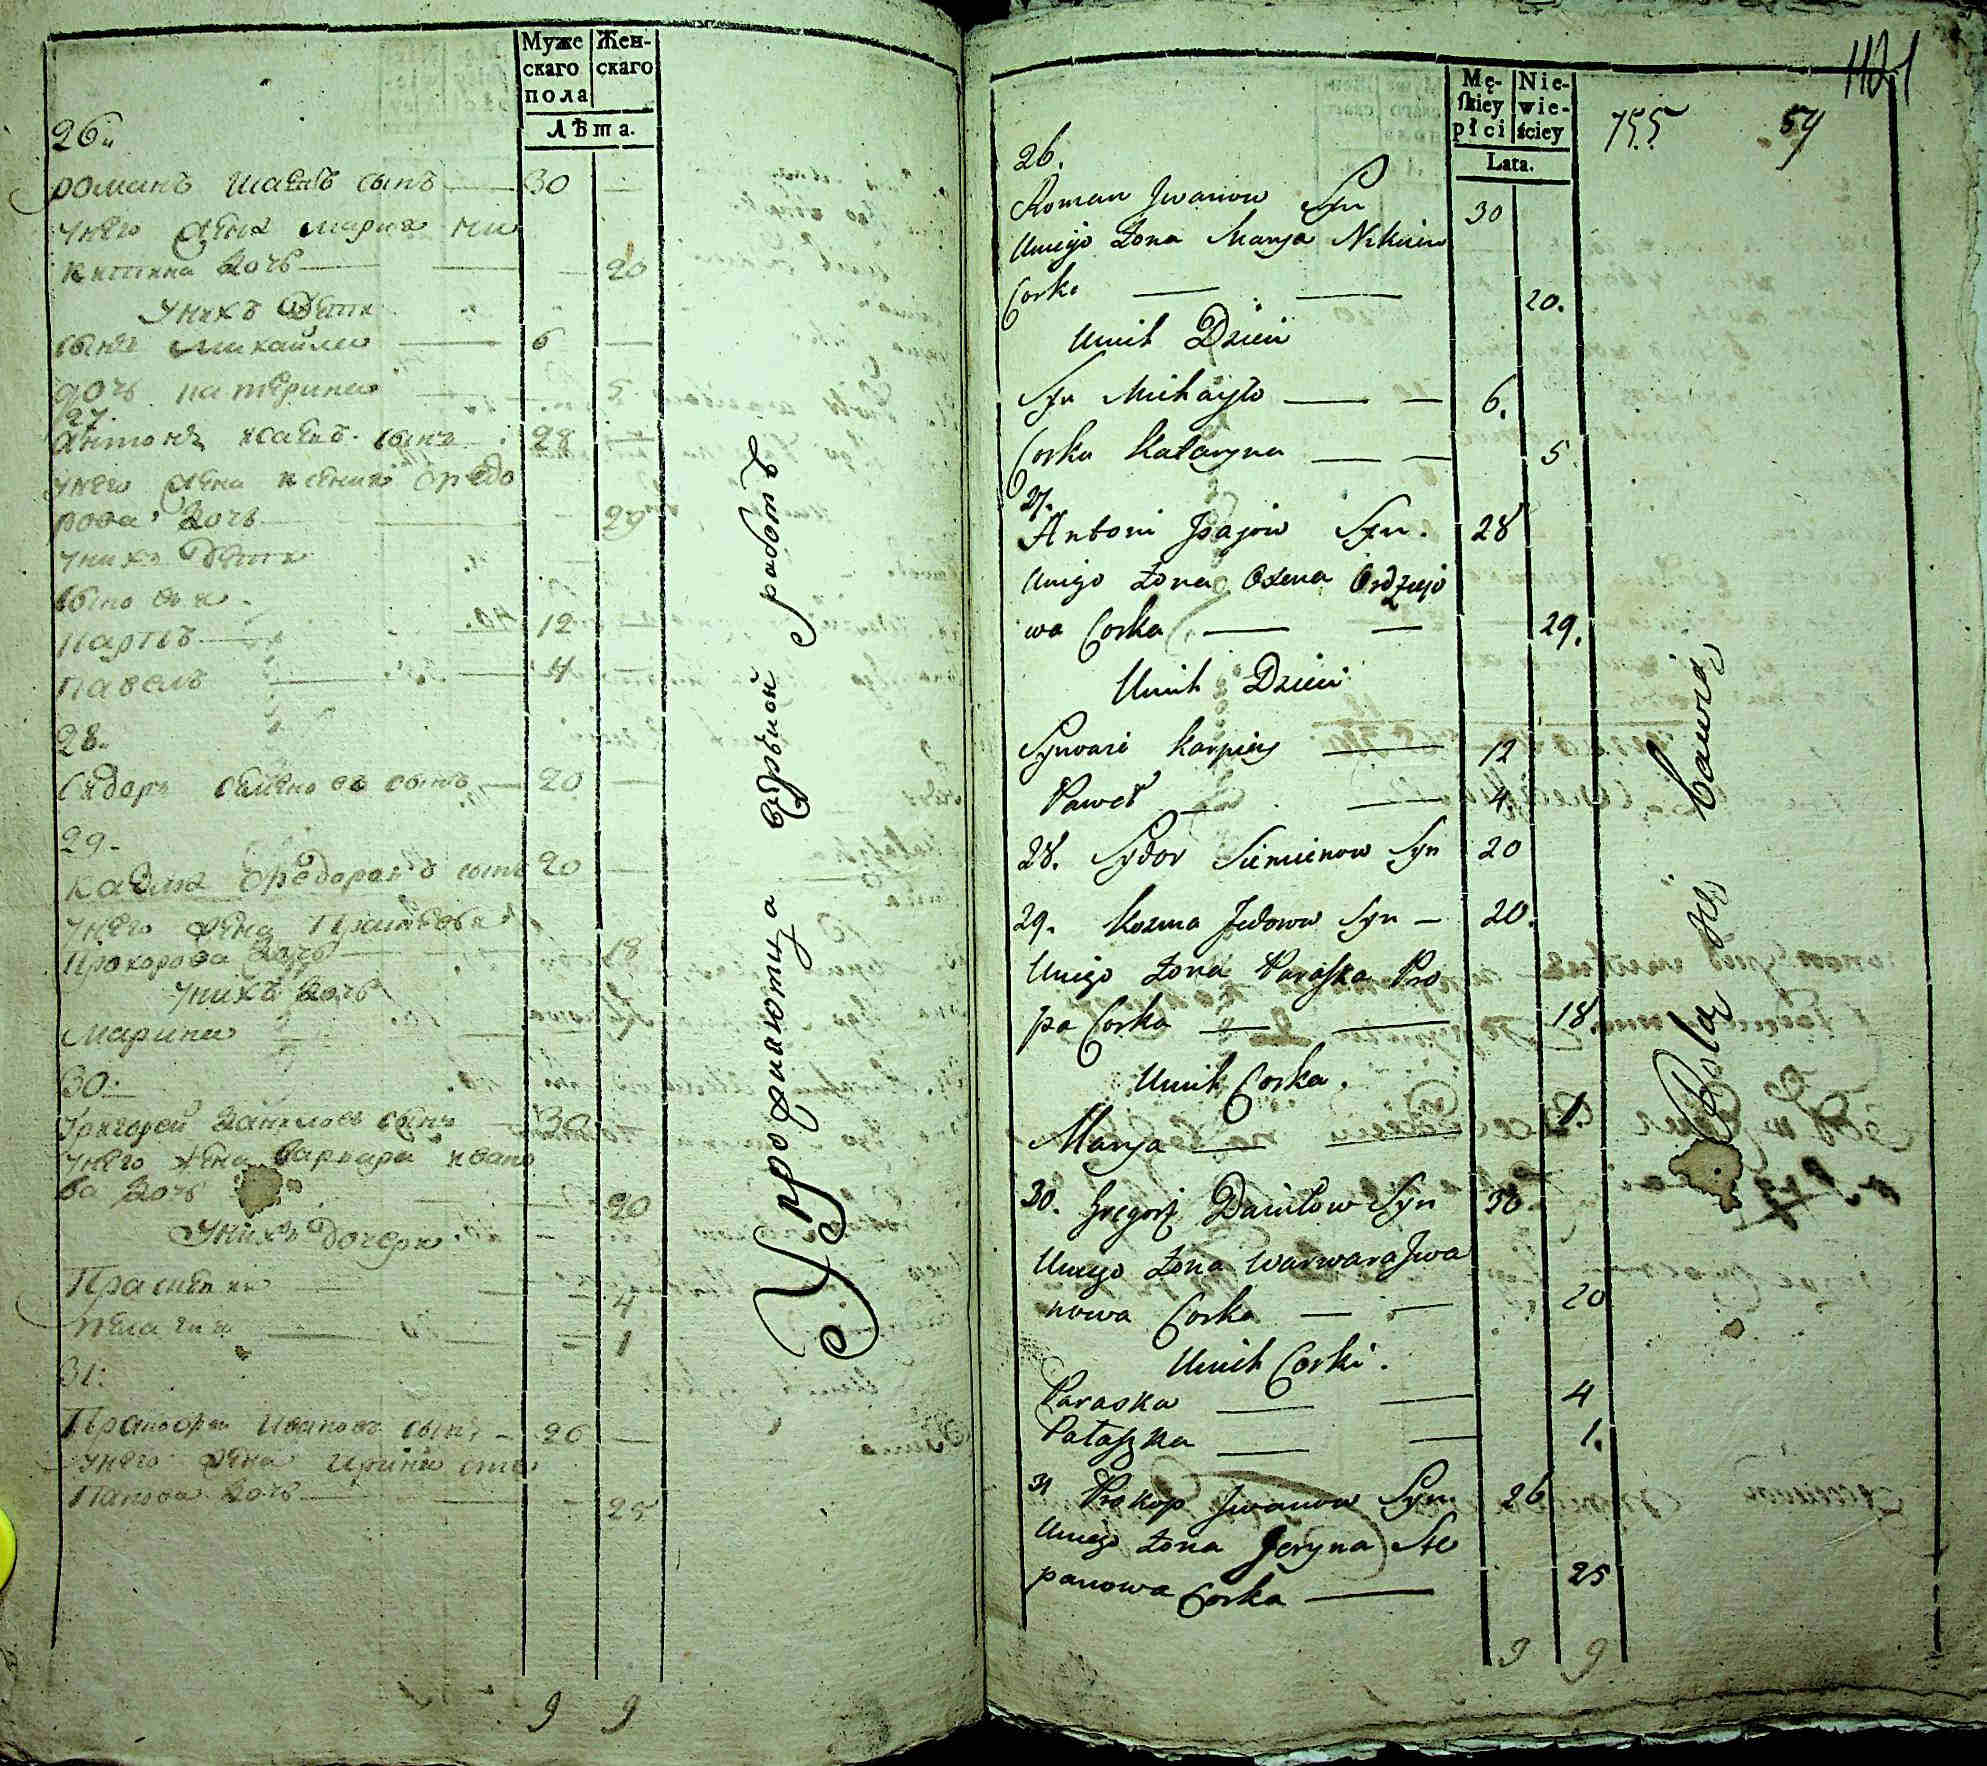 Муже
скаго
пола
Жен-
скаго
Лѣта.
26
романъ сынъ 30
унего жена мария ни
китина дочь 20
унихъ дети
сынъ михайло 6
дочь катерина 5
27.
антонъ исаевъ сынъ 28
унего жена ксения федо
рова дочь 29
унихъ дети
сыновья
карпъ 12
павелъ 4
28.
сидоръ семеновъ сынъ 20
29.
казма федоровъ сынъ 20
унего жена
прохорова дочь 18
унихъ дочь
марина
30.
григорей даниловъ сынъ 30
унего жена варвара ивано
ва дочь 20
унихъ дочери
4
пелагия 1
31.
ивановъ сынъ 26
унего жена ирина сте
панова дочь 25
9 9
Упрожняютца работъ
1121
Mę-
skiey
płci
Nie-
wie-
ściey
Lata.
755 54
26.
Roman Jwanow Syn 30
Uniego Zona Marya Nikicin
Corka 20.
Unich Dzieci
Syn Michayło 6.
Corka Kataryna 5
27.
Antoni Jsajow Syn. 28
Unigo Zona Oxena
wa Corka 29.
Unich Dzieci
Synowie Karpiey 12
Paweł 4.
28. Sydor Siemienow Syn 20
29. Kozma Fedorow Syn 20.
Unigo Zona Paraska Pro
pa Corka 18.
Unich Corka.
Marya 1.
30. Gregory Daniłow Syn 30
Uniego Zona Warwara Jwa
nowa Corka 20
Unich Corki.
Paraska 4
Pałaszka 1.
31 Prokop Jwanow Syn 26
Uniego Zona Jeryna Ste
panowa Corka 25
9 9
Rolą się bawią